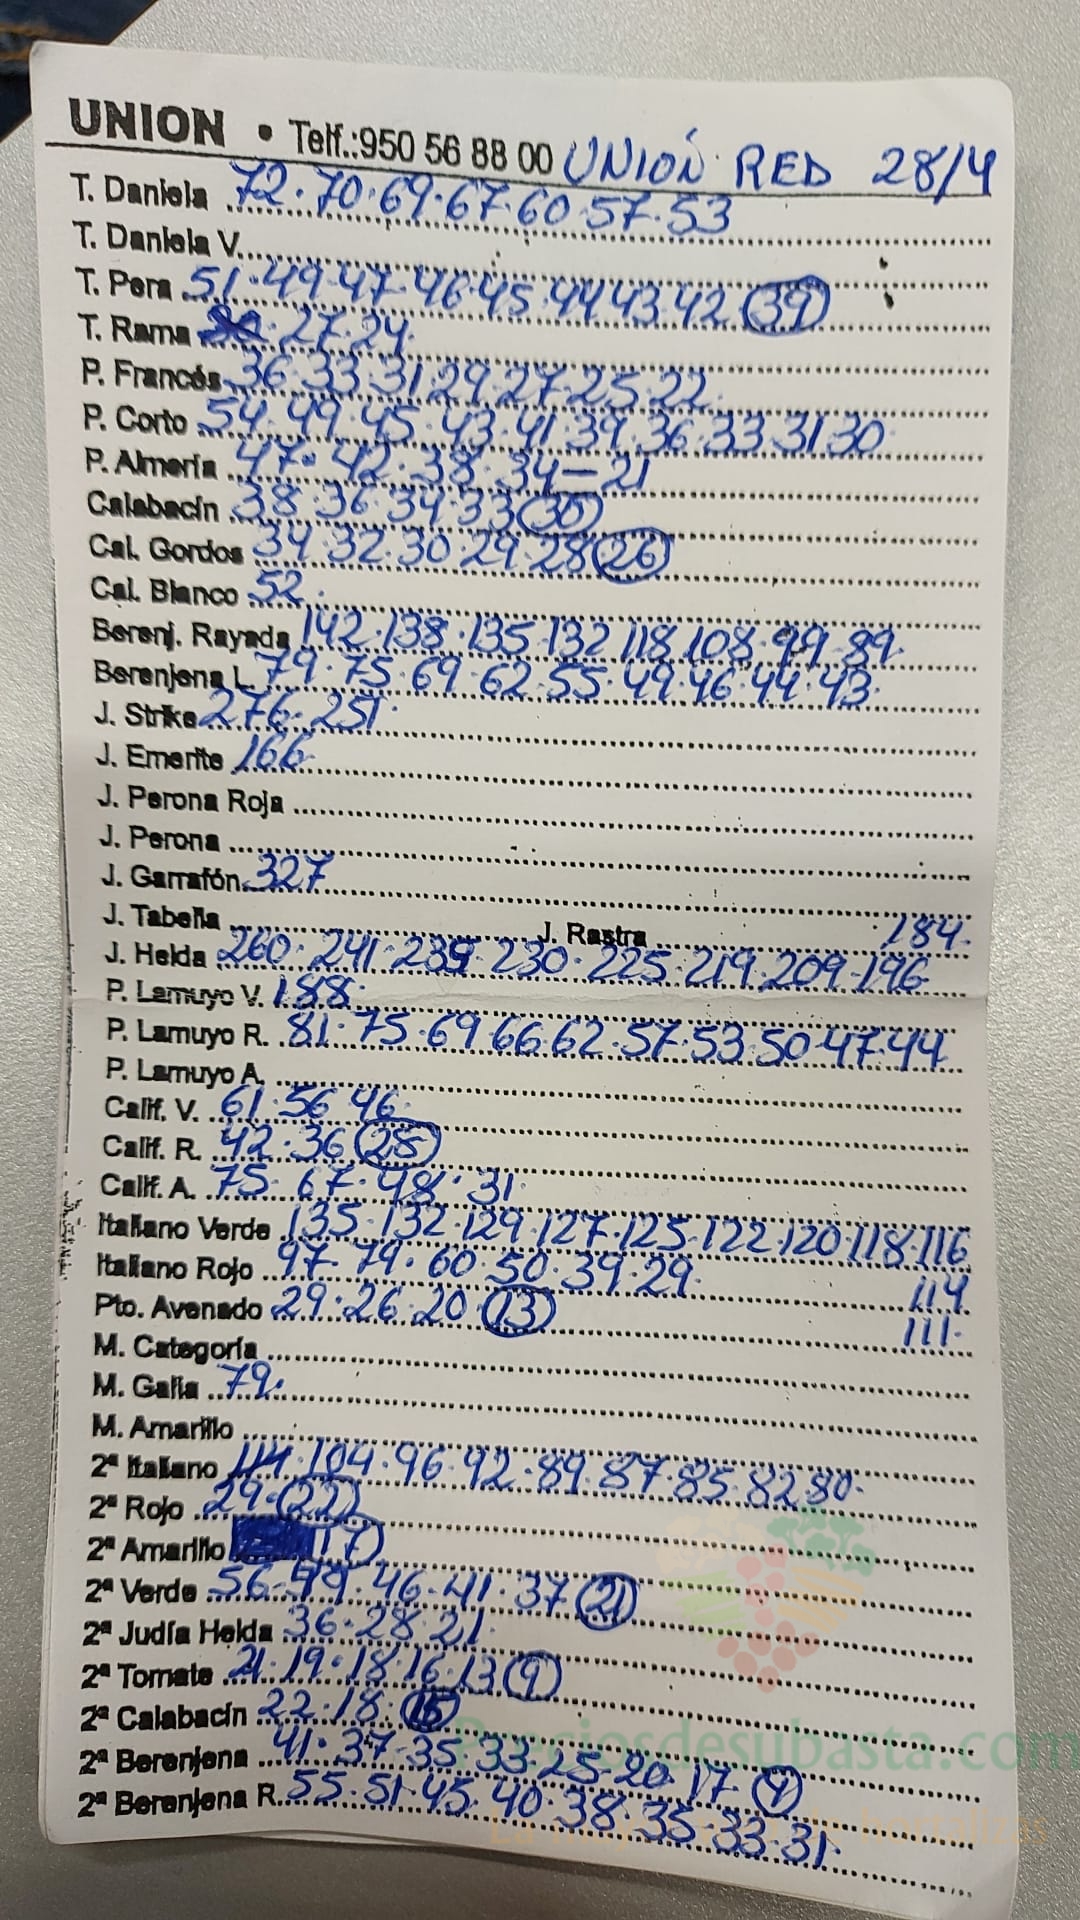 UNION • Telf.:950 56 88 00 UNIÓN RED 28/4
T. Daniela 72·70·69·67·60·57·53
T. Daniela V.
T. Pera 51·49·47·46·45·44 43·42 (39)
T. Rama 27·24
P. Francés 36·33·31·29·27·25·22
P. Corto 54·49·45·43·41·39·36·33·31 30
P. Almería 47·42·38·34–21
Calabacín 38·36·34·33 (30)
Cal. Gordos 34·32·30·29·28 (26)
Cal. Blanco 52
Berenj. Rayada 142·138·135·132·118·108·99·89
Berenjena L. 79·75·69·62·55·49·46·44·43
J. Strike 276·251
J. Emerite 166
J. Perona Roja
J. Perona
J. Garrafón 327
J. Tabella J. Rastra 184
J. Helda 260·241·235·230·225·219·209·196
P. Lamuyo V. 188
P. Lamuyo R. 81·75·69·66·62·57·53·50·47·44
P. Lamuyo A.
Calif. V. 61·56·46
Calif. R. 42·36 (28)
Calif. A. 75·67·48·31
Italiano Verde 135·132·129·127·125·122·120·118·116
Italiano Rojo 97·79·60·50·39·29 114
Pto. Avenado 29·26·20 (13) 111
M. Categoría
M. Galia 79
M. Amarillo
2ª Italiano 114·104·96·92·89·87·85·82·80
2ª Rojo 29 (22)
2ª Amarillo (17)
2ª Verde 56·49·46·41·37 (21)
2ª Judía Helda 36·28·21
2ª Tomate 21·19·18·16·13 (9)
2ª Calabacín 22·18 (15)
2ª Berenjena 41·37·35·33·25·20·17 (9)
2ª Berenjena R. 55·51·45·40·38·35·33·31
Preciosdesubasta.com